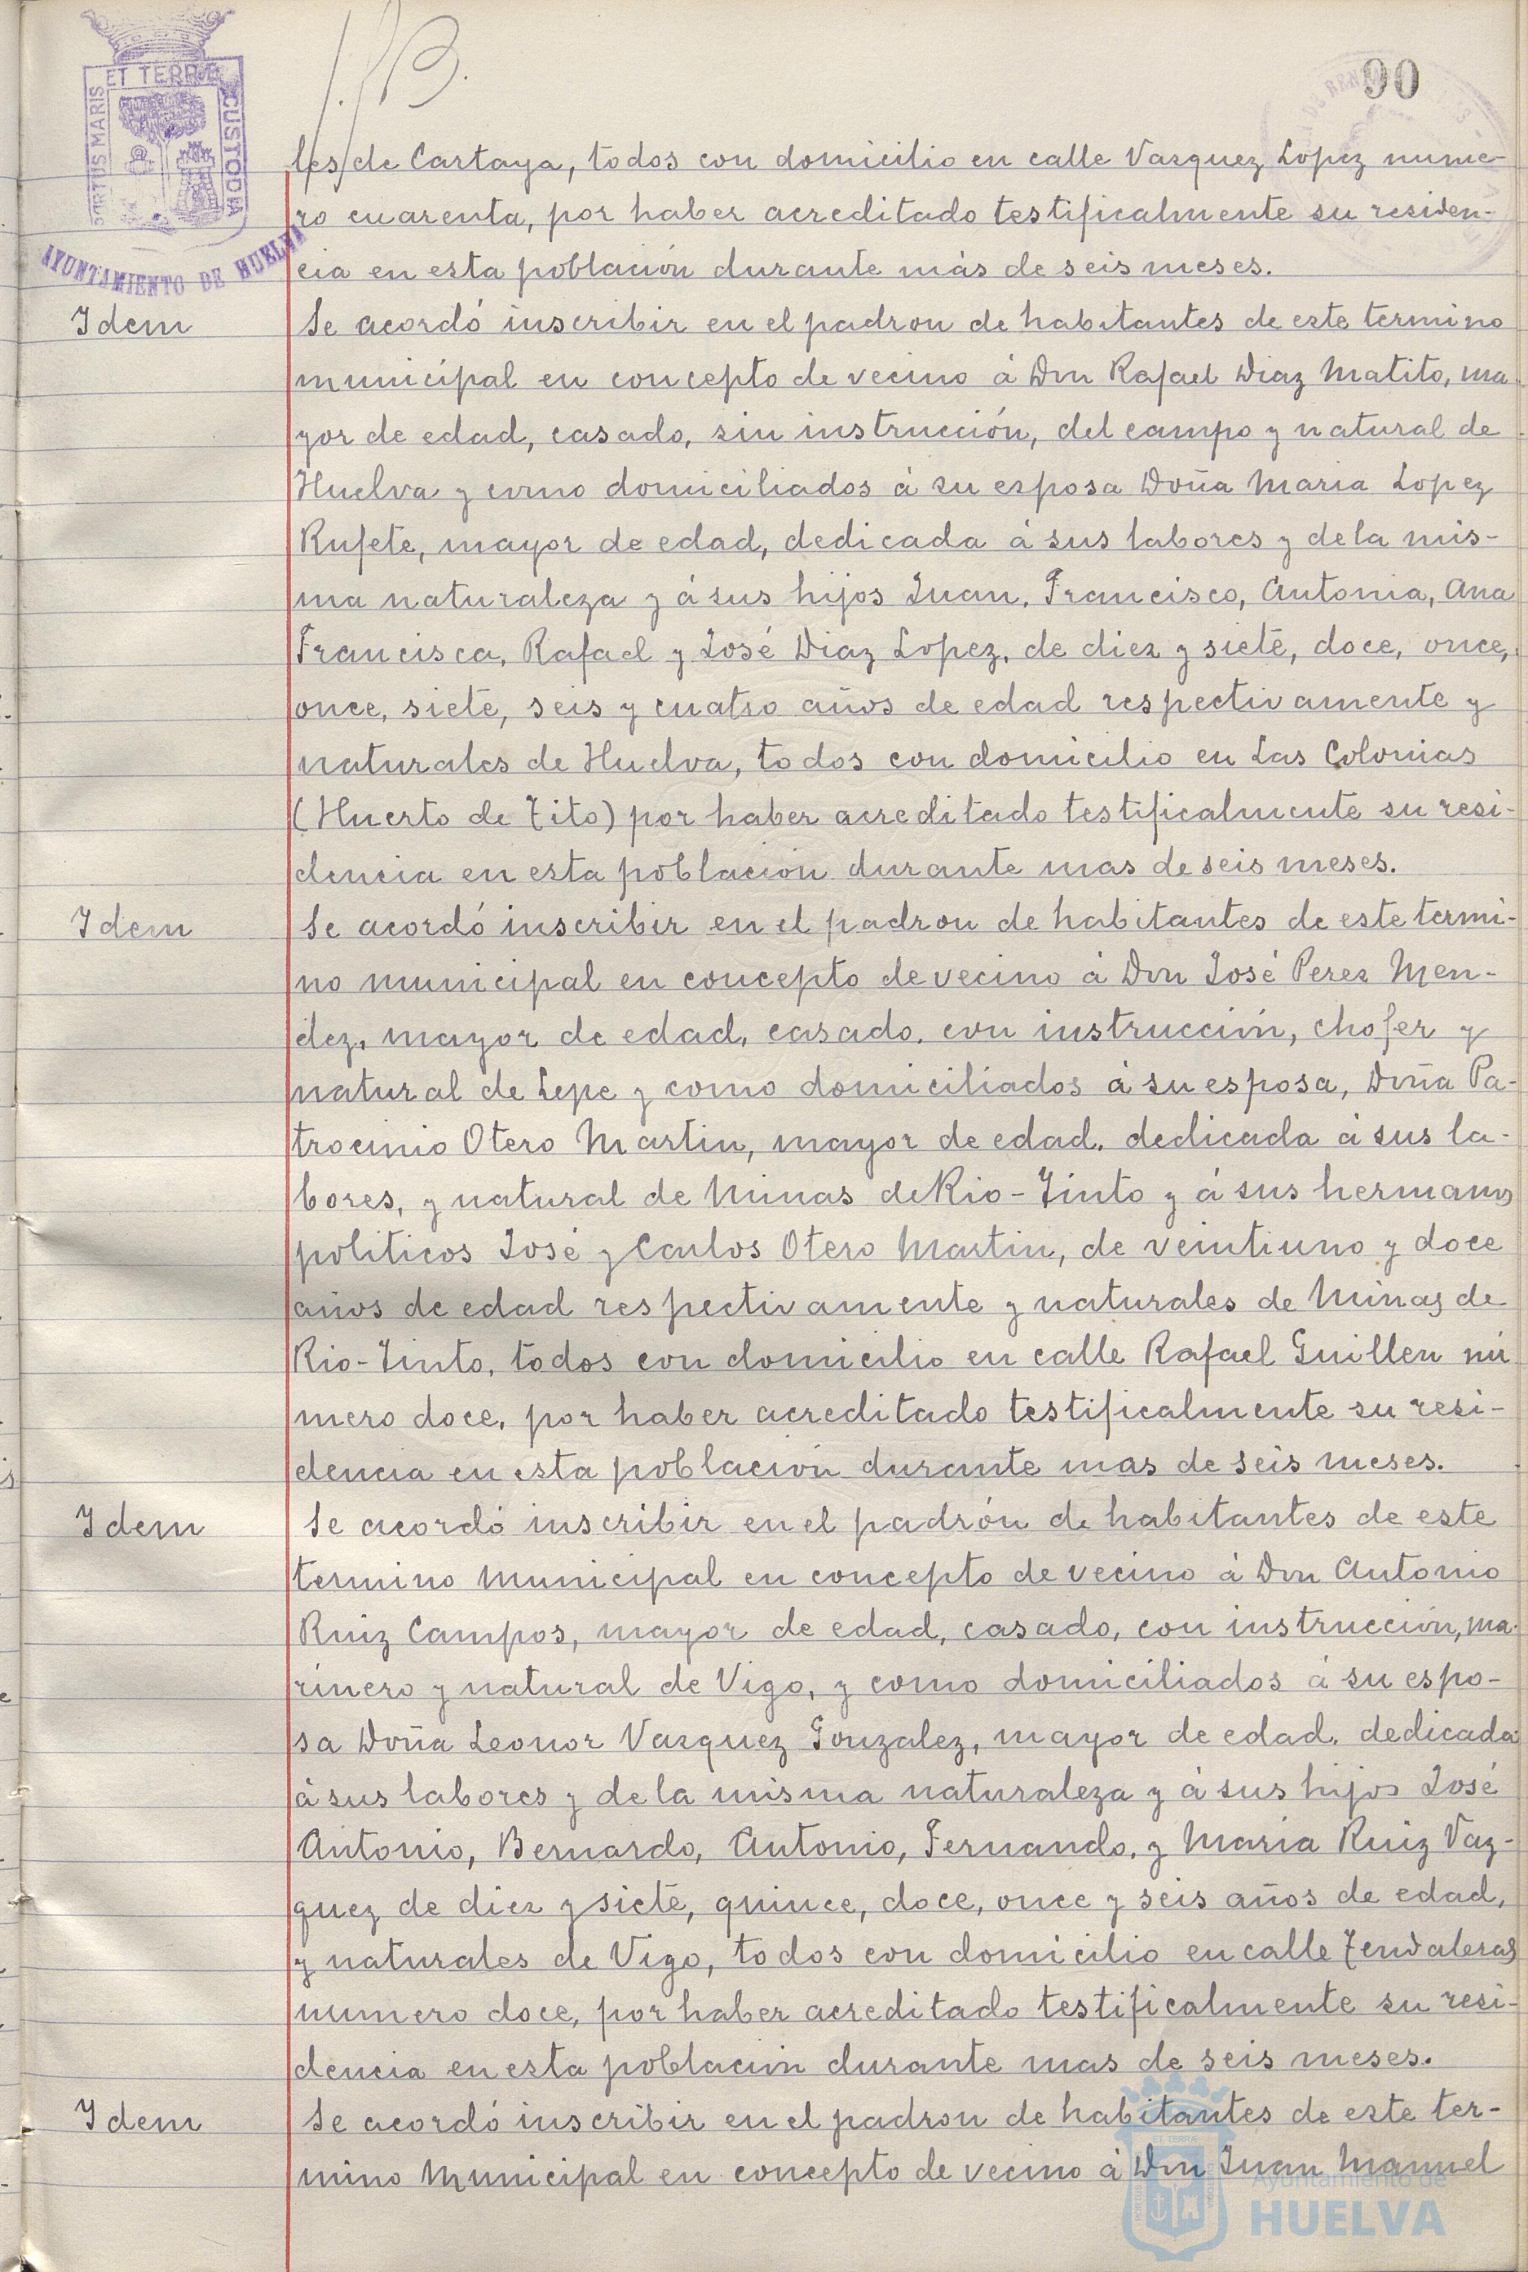 90
PORTUS MARIS ET TERRÆ CUSTODIA
AYUNTAMIENTO DE HUELVA
les de Cartaya, todos con domicilio en calle Vazquez Lopez nume-
ro cuarenta, por haber acreditado testificalmente su residen-
cia en esta población durante más de seis meses.
Idem
Se acordó inscribir en el padron de habitantes de este termino
municipal en concepto de vecino á Don Rafael Diaz Matito, ma
yor de edad, casado, sin instrucción, del campo y natural de
Huelva y como domiciliados á su esposa Doña Maria Lopez
Rufete, mayor de edad, dedicada á sus labores y de la mis-
ma naturaleza y á sus hijos Juan, Francisco, Antonia, Ana
Francisca, Rafael y José Diaz Lopez, de diez y siete, doce, once,
once, siete, seis y cuatro años de edad respectivamente y
naturales de Huelva, todos con domicilio en Las Colonias
(Huerto de Tito) por haber acreditado testificalmente su resi-
dencia en esta población durante mas de seis meses.
Idem
Se acordó inscribir en el padron de habitantes de este termi-
no municipal en concepto de vecino á Don José Perez Men-
dez, mayor de edad, casado, con instrucción, chofer y
natural de Lepe y como domiciliados á su esposa, Doña Pa-
trocinio Otero Martin, mayor de edad, dedicada á sus la-
bores, y natural de Minas de Rio-Tinto y á sus hermanos
politicos José y Carlos Otero Martin, de veintiuno y doce
años de edad respectivamente y naturales de Minas de
Rio-Tinto, todos con domicilio en calle Rafael Guillen nú
mero doce, por haber acreditado testificalmente su resi-
dencia en esta población durante mas de seis meses.
Idem
Se acordó inscribir en el padrón de habitantes de este
termino municipal en concepto de vecino á Don Antonio
Ruiz Campos, mayor de edad, casado, con instrucción, ma-
rinero y natural de Vigo, y como domiciliados á su espo-
sa Doña Leonor Vazquez Gonzalez, mayor de edad, dedicada
á sus labores y de la misma naturaleza y á sus hijos José
Antonio, Bernardo, Antonio, Fernando, y Maria Ruiz Vaz-
quez de diez y siete, quince, doce, once y seis años de edad,
y naturales de Vigo, todos con domicilio en calle Tendaleras
numero doce, por haber acreditado testificalmente su resi-
dencia en esta población durante mas de seis meses.
Idem
Se acordó inscribir en el padron de habitantes de este ter-
mino municipal en concepto de vecino á Don Juan Manuel
Ayuntamiento de
HUELVA